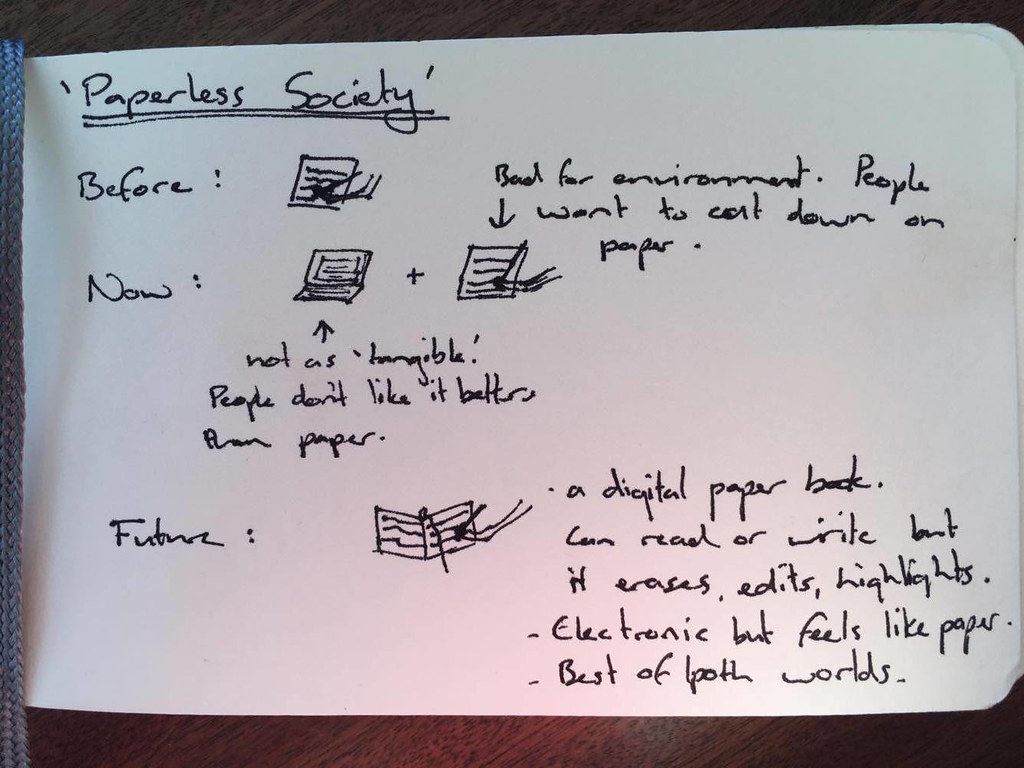 'Paperless Society'
Before :
Bad for environment. People
↓ want to cut down on
paper.
Now :
+
↑
not as 'tangible'.
People don't like it better
than paper.
Future :
· a digital paper book.
Can read or write but
it erases, edits, highlights.
- Electronic but feels like paper.
- Best of both worlds.